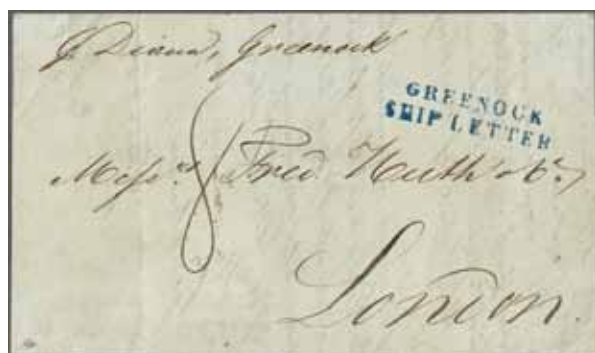 p Diana, Greenock
GREENOCK
SHIP LETTER
8
Messrs. Fred Huth & Co
London.